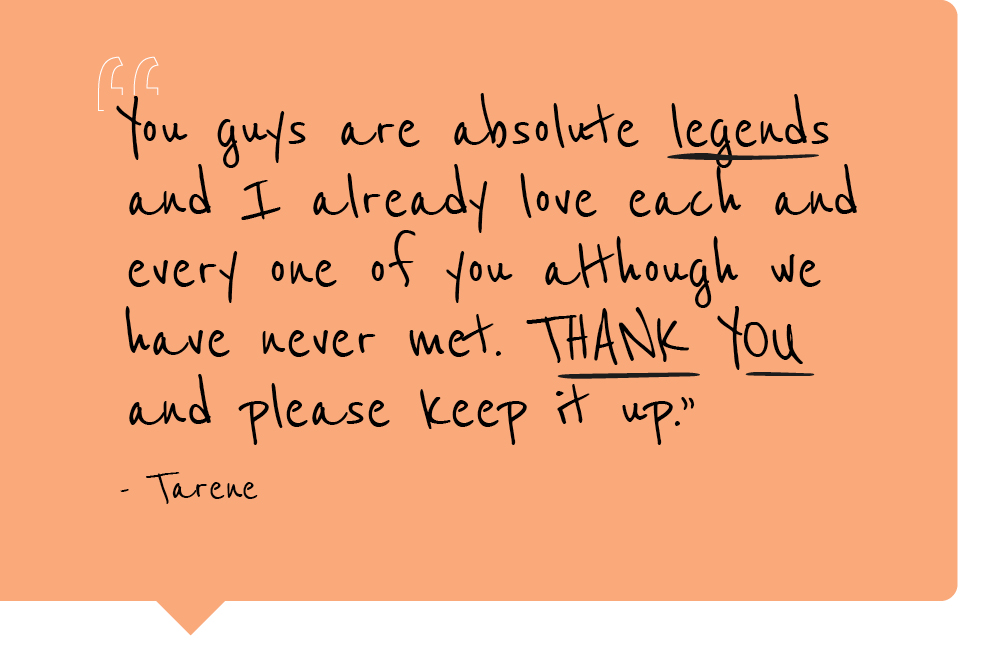 “You guys are absolute legends
and I already love each and
every one of you although we
have never met. THANK YOU
and please keep it up.”
- Tarene